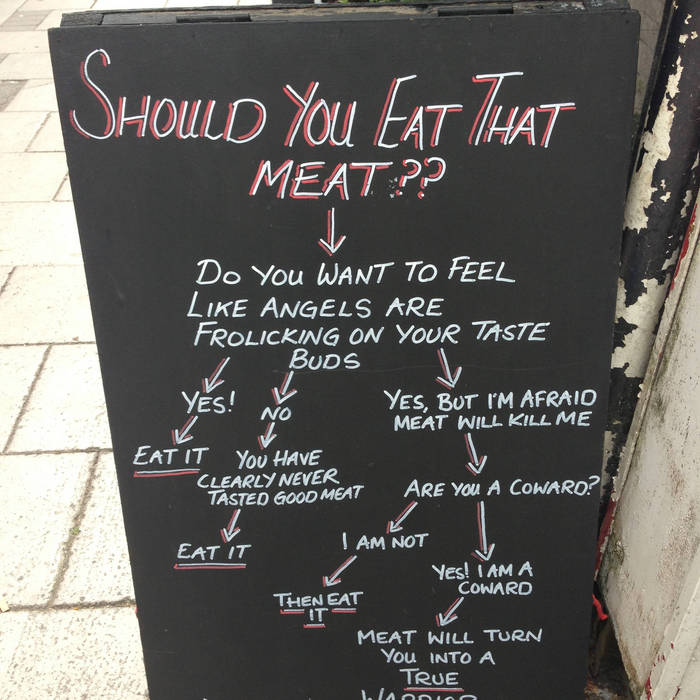 SHOULD YOU EAT THAT
MEAT??
DO YOU WANT TO FEEL
LIKE ANGELS ARE
FROLICKING ON YOUR TASTE
BUDS
YES!
EAT IT
NO
YOU HAVE
CLEARLY NEVER
TASTED GOOD MEAT
EAT IT
YES, BUT I'M AFRAID
MEAT WILL KILL ME
ARE YOU A COWARD?
I AM NOT
THEN EAT
IT
YES! I AM A
COWARD
MEAT WILL TURN
YOU INTO A
TRUE
WARRIOR